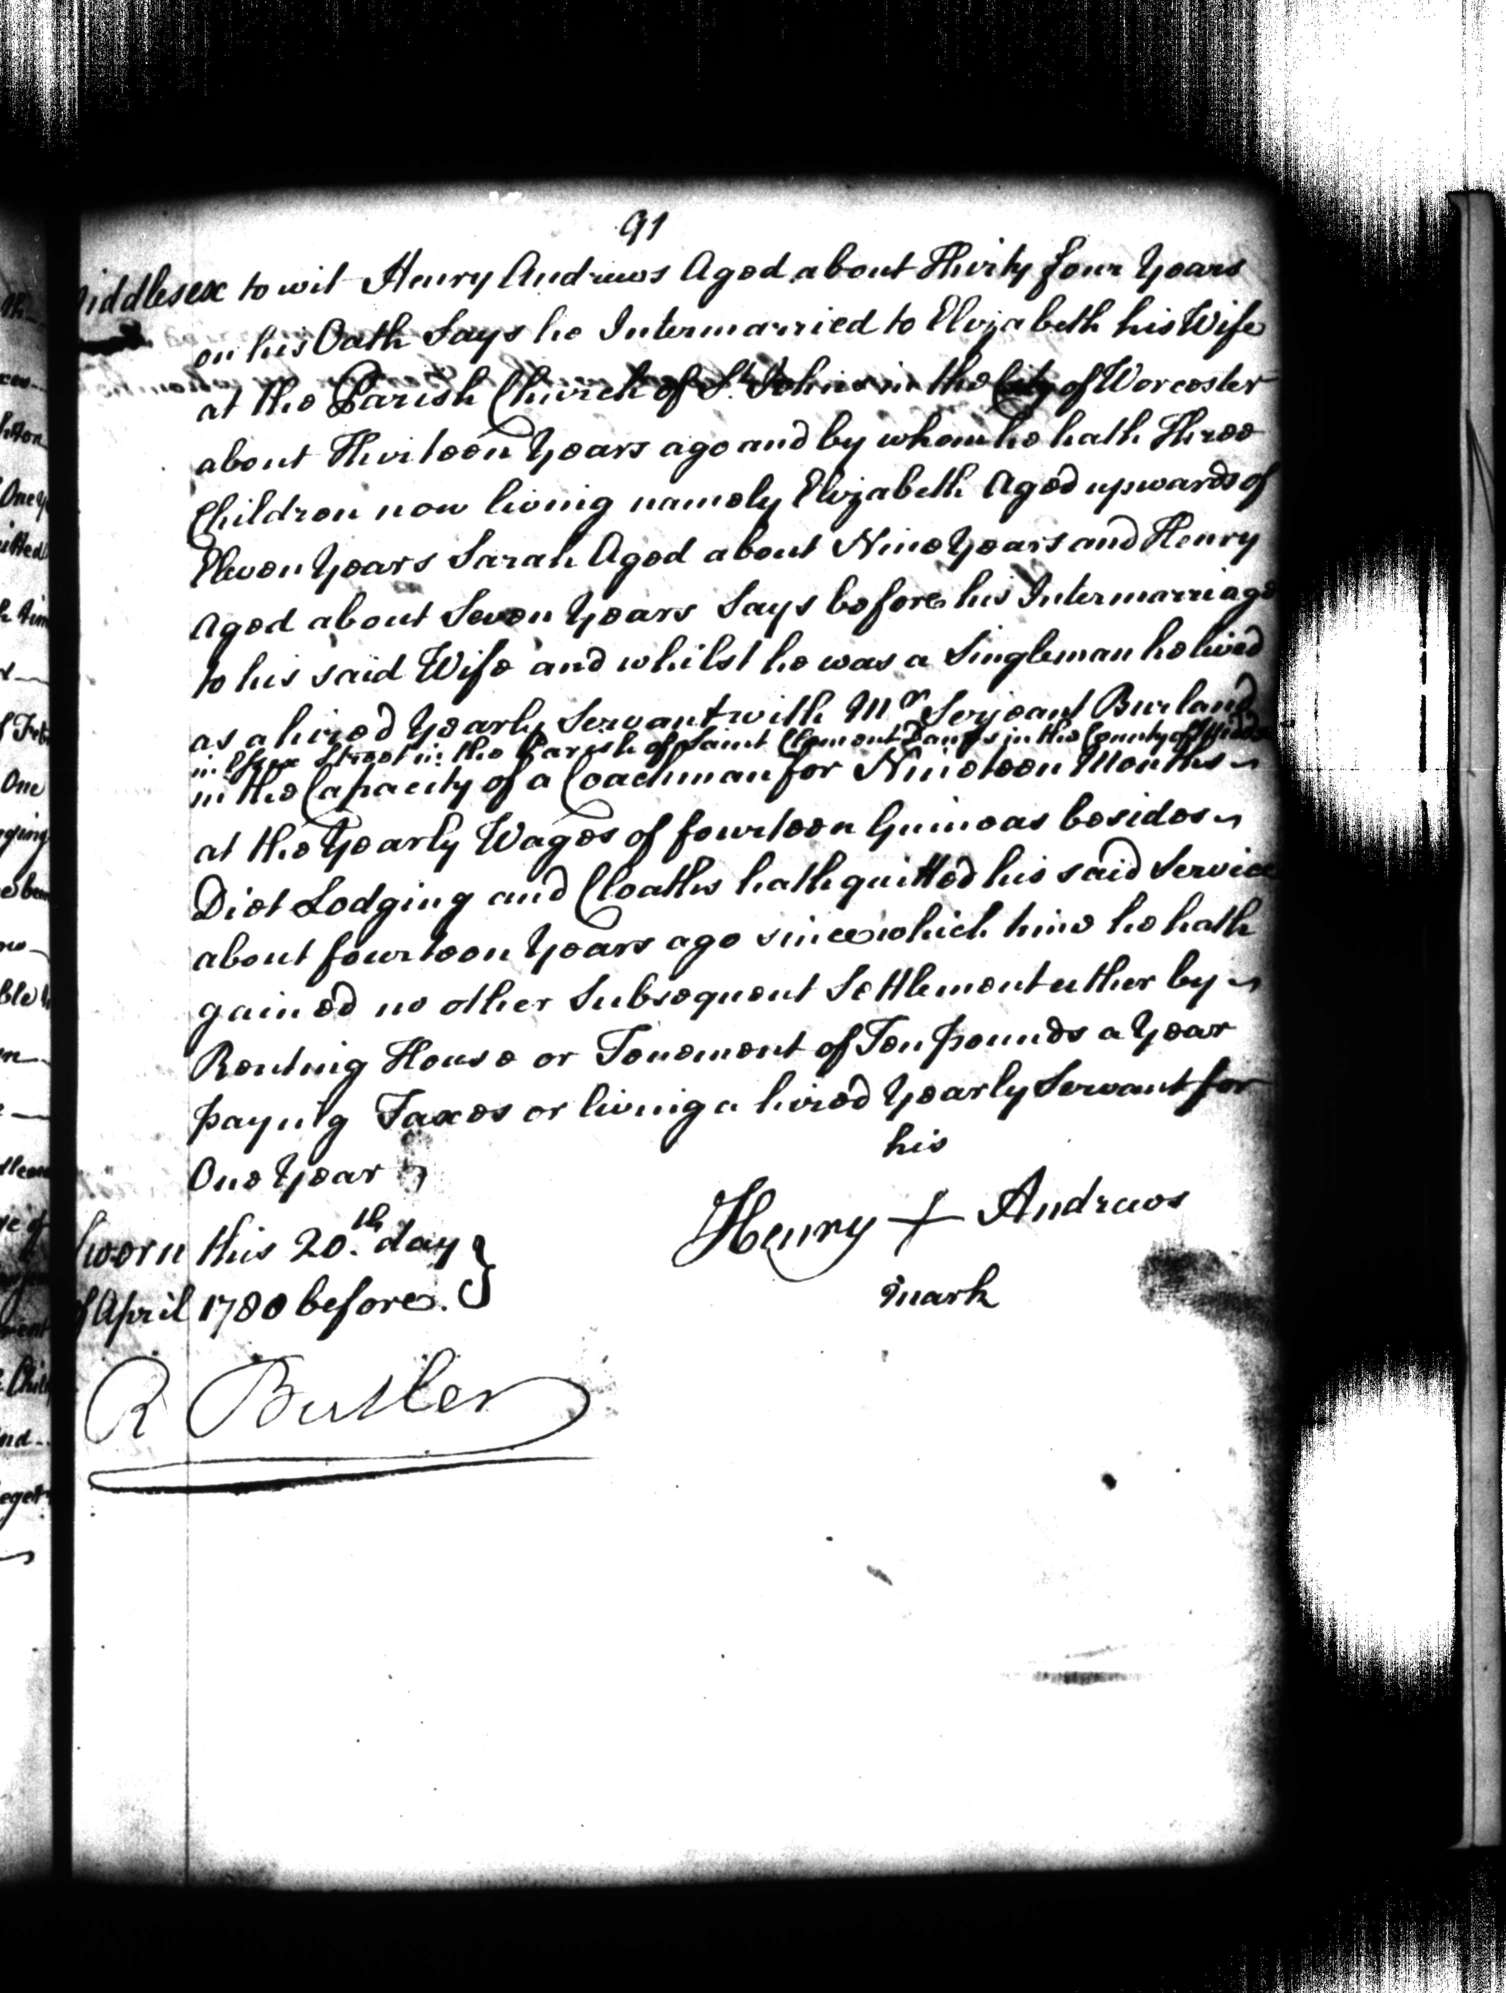 91
Middlesex to wit Henry Andrews Aged about Thirty four Years
on his Oath Says he Intermarried to Elizabeth his Wife
at the Parish Church of St. Johns in the City of Worcester
about Thirteen Years ago and by whom he hath Three
Children now living namely Elizabeth Aged upwards of
Eleven Years Sarah Aged about Nine Years and Henry
Aged about Seven Years Says before his Intermarriage
to his said Wife and whilst he was a Singleman he lived
as a hired Yearly Servant with Mr Serjeant Burland
in Essex Street in the Parish of Saint Clement Danes in the County of Middx
in the Capacity of a Coachman for Nineteen Months
at the Yearly Wages of fourteen Guineas besides
Diet Lodging and Cloaths hath quitted his said Service
about fourteen Years ago since which time he hath
gained no other Subsequent Settlement either by
Renting House or Tenement of Ten pounds a Year
paying Taxes or living a hired Yearly Servant for
One Year
his
Henry + Andrews
mark
Sworn this 20.th day
of April 1780 before.
R Butler